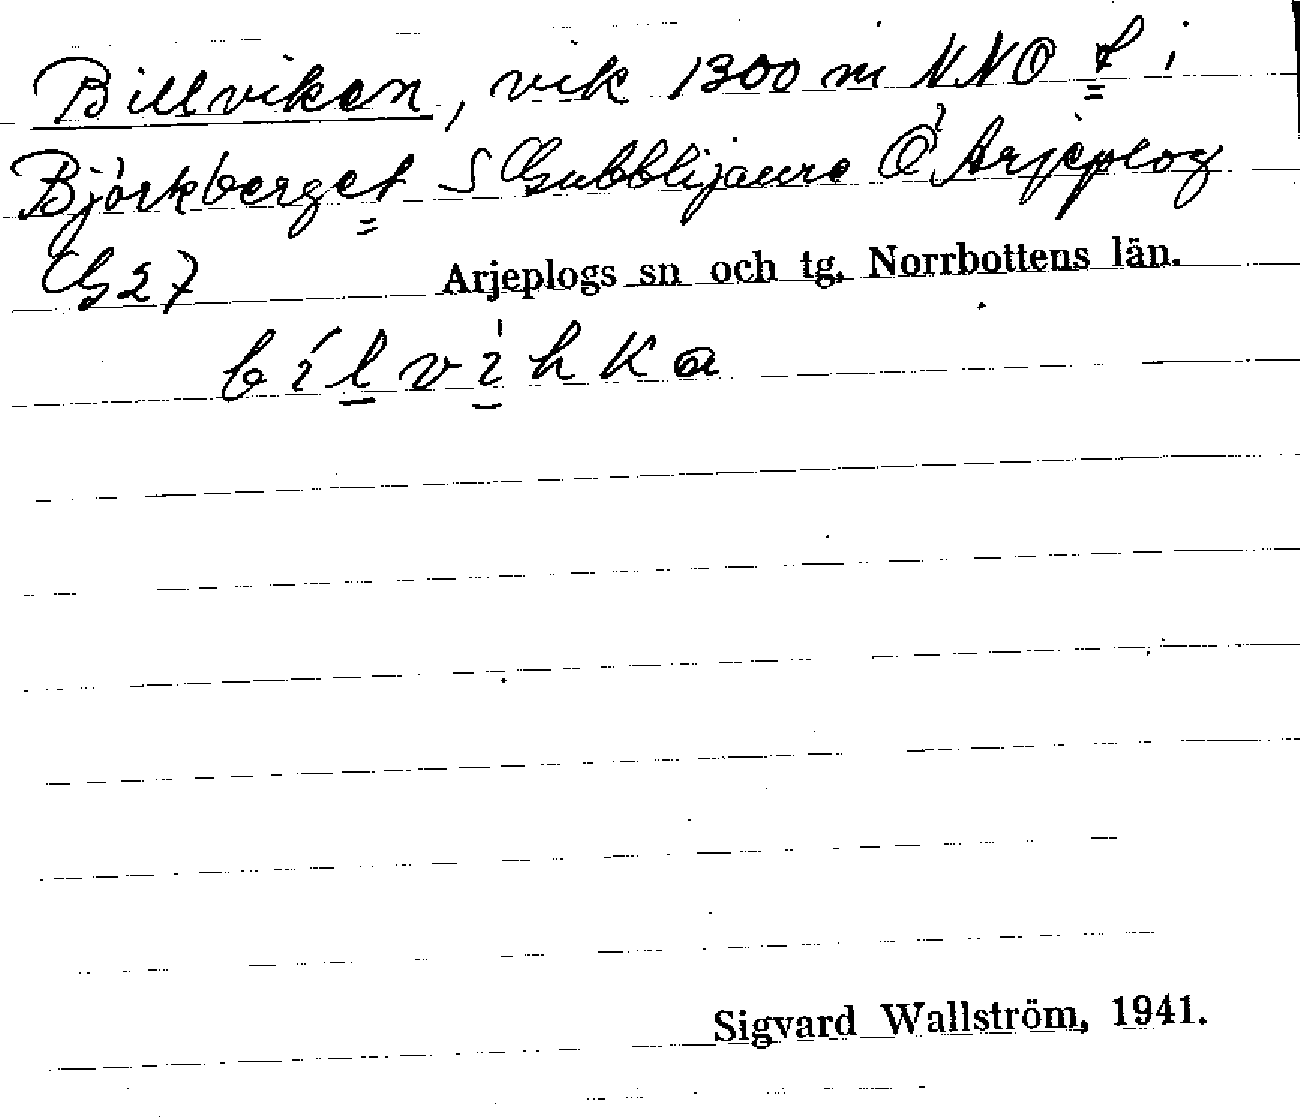 Billviken, vik 1300 m NNO t i
Björkberget S Gubblijaure Ö Arjeplog
G27 Arjeplogs sn och tg. Norrbottens län.
bílvìhka
Sigvard Wallström, 1941.